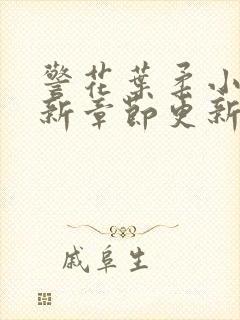 警花叶柔小
新章节更新
戚阜生